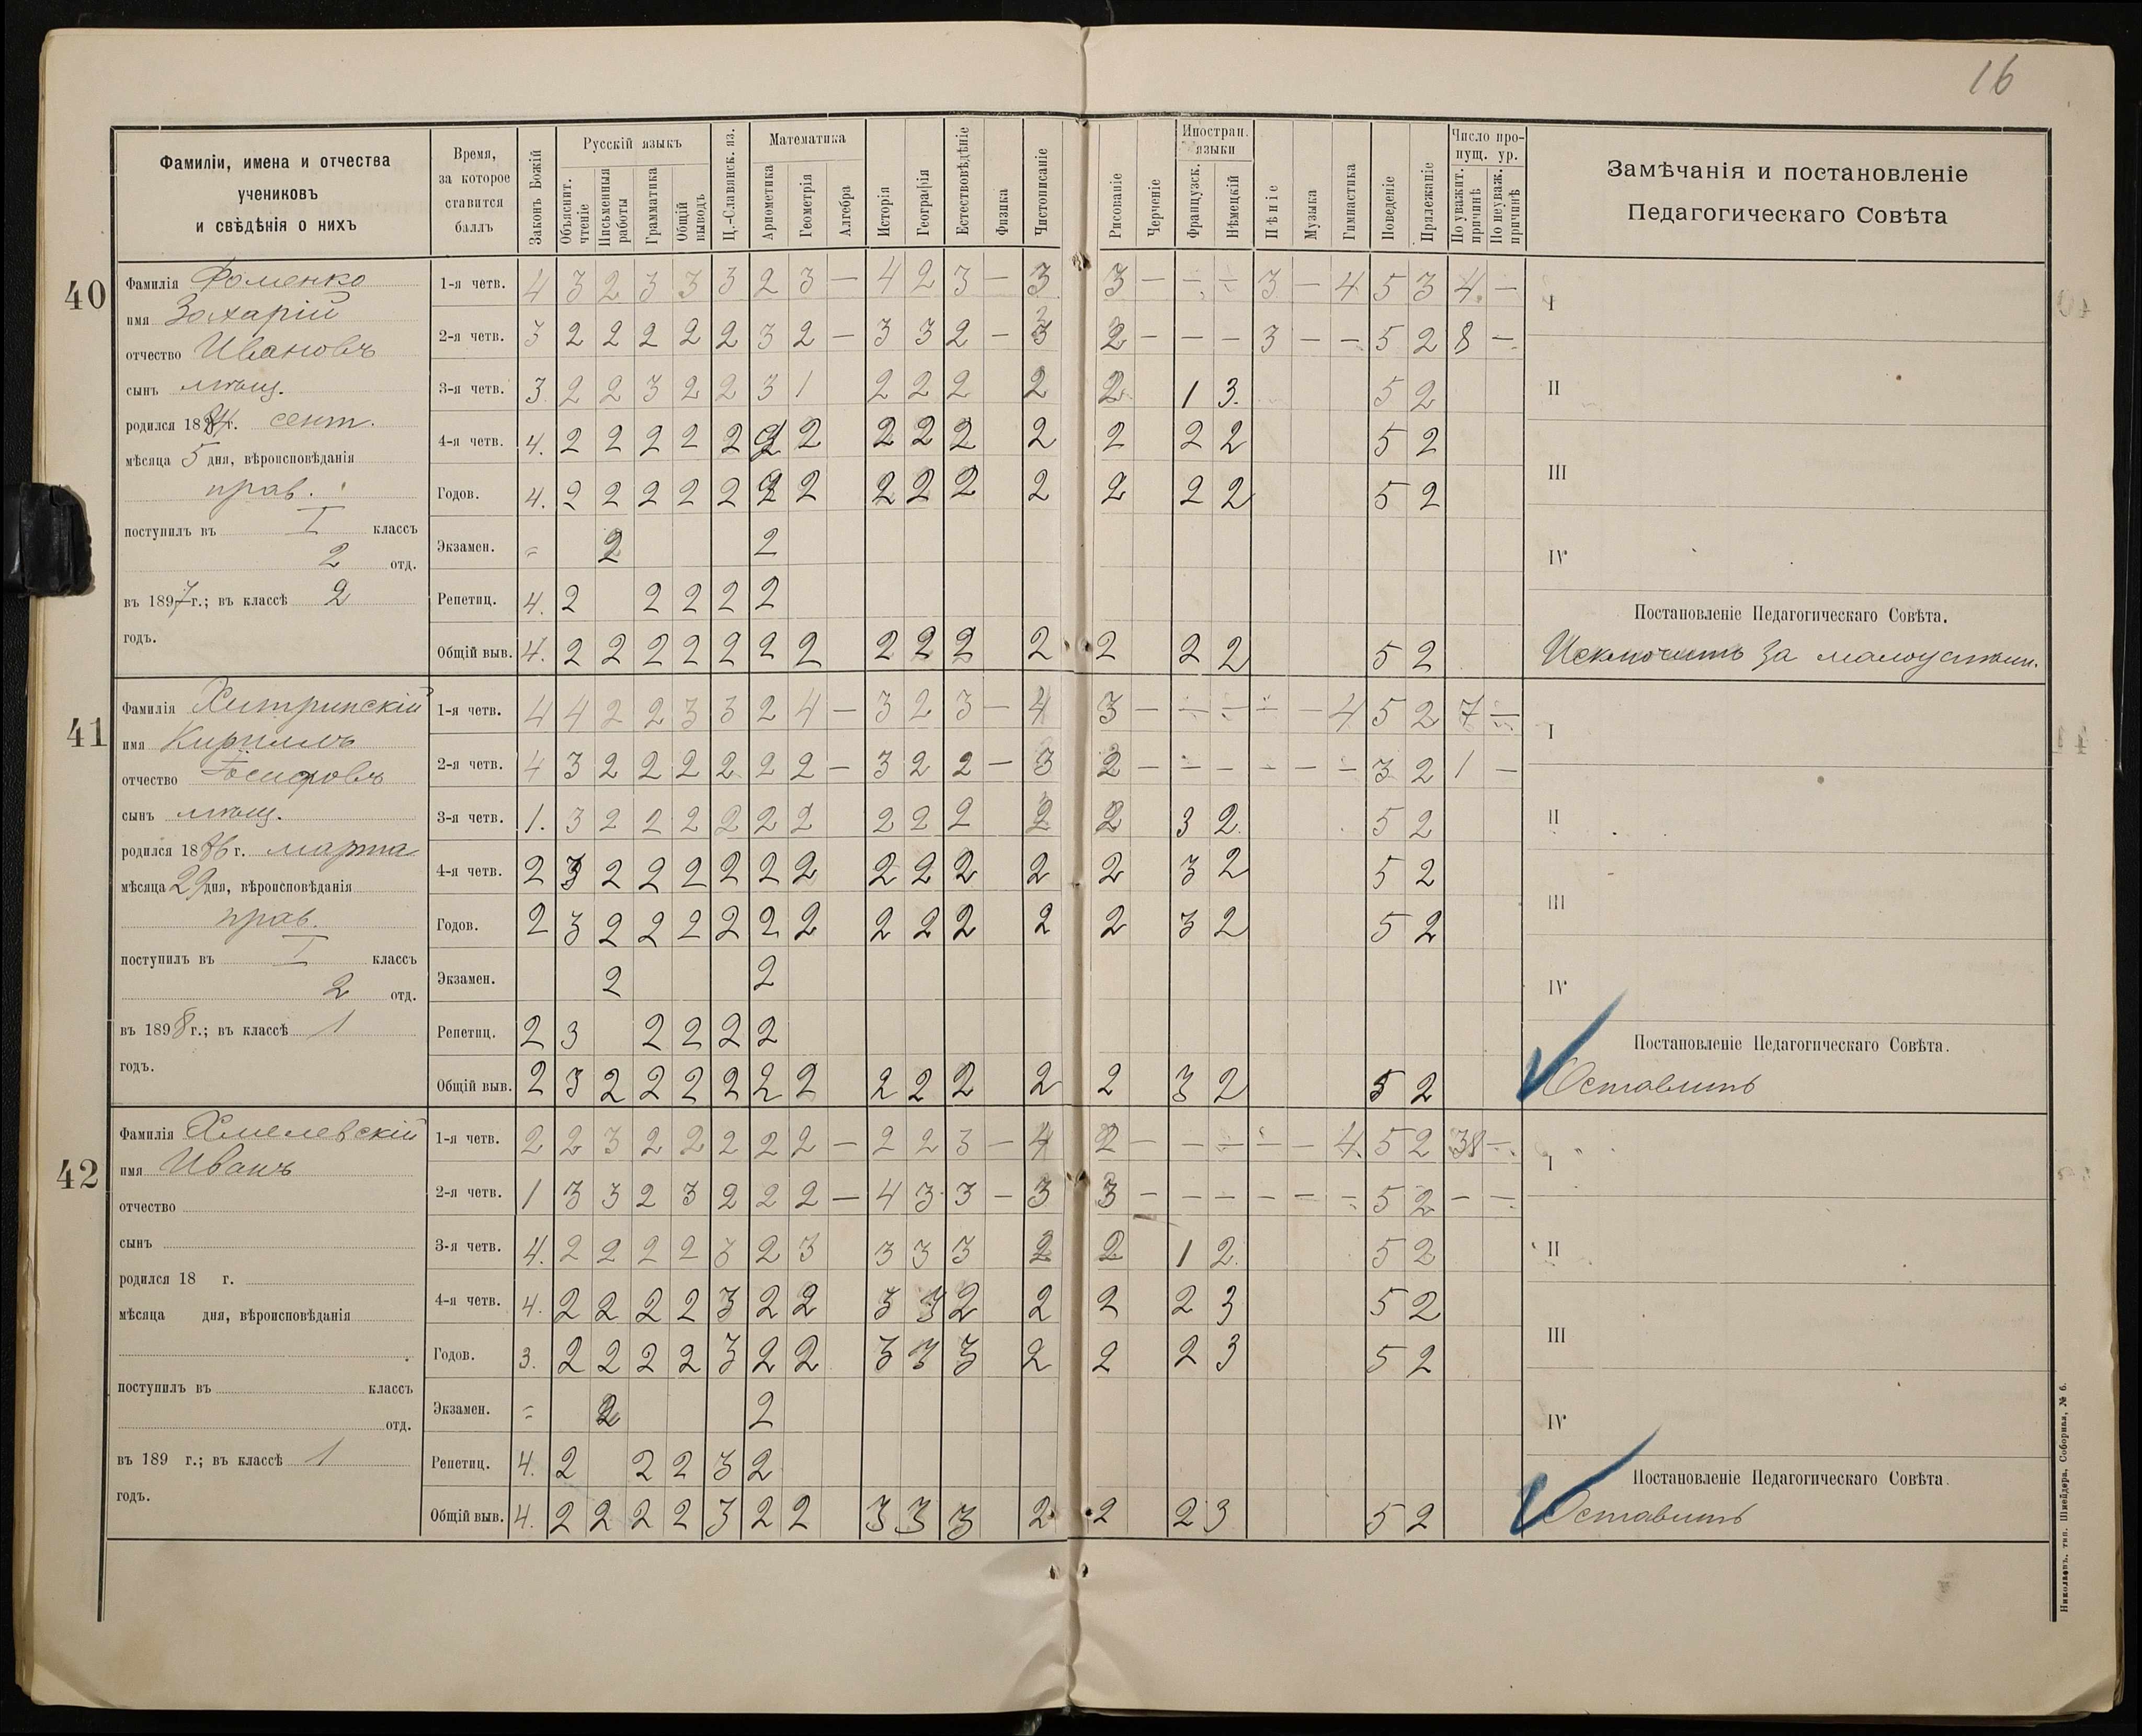 16
Фамиліи, имена и отчества
учениковъ
и свѣдѣнія о нихъ
Время,
за которое
ставится
баллъ
Законъ Божій
Русскій языкъ
Объяснит. чтеніе
Письменныя работы
Грамматика
Общій выводъ
Ц.-Славянск. яз.
Математика
Ариѳметика
Геометрія
Алгебра
Исторія
Географія
Естествовѣдѣніе
Физика
Чистописаніе
Рисованіе
Черченіе
Иностран. языки
Французск.
Нѣмецкій
Пѣніе
Музыка
Гимнастика
Поведеніе
Прилежаніе
Число пропущ. ур.
По уважит. причинѣ
По неуваж. причинѣ
Замѣчанія и постановленіе
Педагогическаго Совѣта
40
Фамилія Фоменко
имя Захарій
отчество Ивановъ
сынъ мѣщ.
родился 1884 г. сент.
мѣсяца 5 дня, вѣроисповѣданія
прав.
поступилъ въ I классъ
2 отд.
въ 1897 г.; въ классѣ 2
годъ.
1-я четв. 4 3 2 3 3 3 2 3 — 4 2 3 — 3 3 — — — 3 — 4 5 3 4 —
2-я четв. 3 2 2 2 2 2 3 2 — 3 3 2 — 3 2 — — — 3 — — 5 2 8 —
3-я четв. 3 2 2 3 2 2 3 1 2 2 2 2 2 1 3 5 2
4-я четв. 4 2 2 2 2 2 2 2 2 2 2 2 2 2 2 5 2
Годов. 4 2 2 2 2 2 2 2 2 2 2 2 2 2 2 5 2
Экзамен. = 2 2
Репетиц. 4 2 2 2 2 2
Общій выв. 4 2 2 2 2 2 2 2 2 2 2 2 2 2 2 5 2
I
II
III
IV
Постановленіе Педагогическаго Совѣта.
Исключить за малоуспѣш.
41
Фамилія Хитринскій
имя Кириллъ
отчество
сынъ мѣщ.
родился 1886 г. марта
мѣсяца 29 дня, вѣроисповѣданія
прав.
поступилъ въ I классъ
2 отд.
въ 1898 г.; въ классѣ 1
годъ.
1-я четв. 4 4 2 2 3 3 2 4 — 3 2 3 — 4 3 — — — — — 4 5 2 7 —
2-я четв. 4 3 2 2 2 2 2 2 — 3 2 2 — 3 2 — — — — — — 3 2 1 —
3-я четв. 1 3 2 2 2 2 2 2 2 2 2 2 2 3 2 5 2
4-я четв. 2 3 2 2 2 2 2 2 2 2 2 2 2 3 2 5 2
Годов. 2 3 2 2 2 2 2 2 2 2 2 2 2 3 2 5 2
Экзамен. 2 2
Репетиц. 2 3 2 2 2 2
Общій выв. 2 3 2 2 2 2 2 2 2 2 2 2 2 3 2 5 2
I
II
III
IV
Постановленіе Педагогическаго Совѣта.
Оставить
42
Фамилія Хмелевскій
имя Иванъ
отчество
сынъ
родился 18 г.
мѣсяца дня, вѣроисповѣданія
поступилъ въ классъ
отд.
въ 189 г.; въ классѣ 1
годъ.
1-я четв. 2 2 3 2 2 2 2 2 — 2 2 3 — 4 2 — — — — — 4 5 2 38 —
2-я четв. 1 3 3 2 3 2 2 2 — 4 3 3 — 3 3 — — — — — — 5 2 — —
3-я четв. 4 2 2 2 2 3 2 3 3 3 3 2 2 1 2 5 2
4-я четв. 4 2 2 2 2 3 2 2 3 3 2 2 2 2 3 5 2
Годов. 3 2 2 2 2 3 2 2 3 3 3 2 2 2 3 5 2
Экзамен. = 2 2
Репетиц. 4 2 2 2 3 2
Общій выв. 4 2 2 2 2 3 2 2 3 3 3 2 2 2 3 5 2
I
II
III
IV
Постановленіе Педагогическаго Совѣта.
Оставить
Николаевъ, тип. Шнейдера, Соборная, № 6.